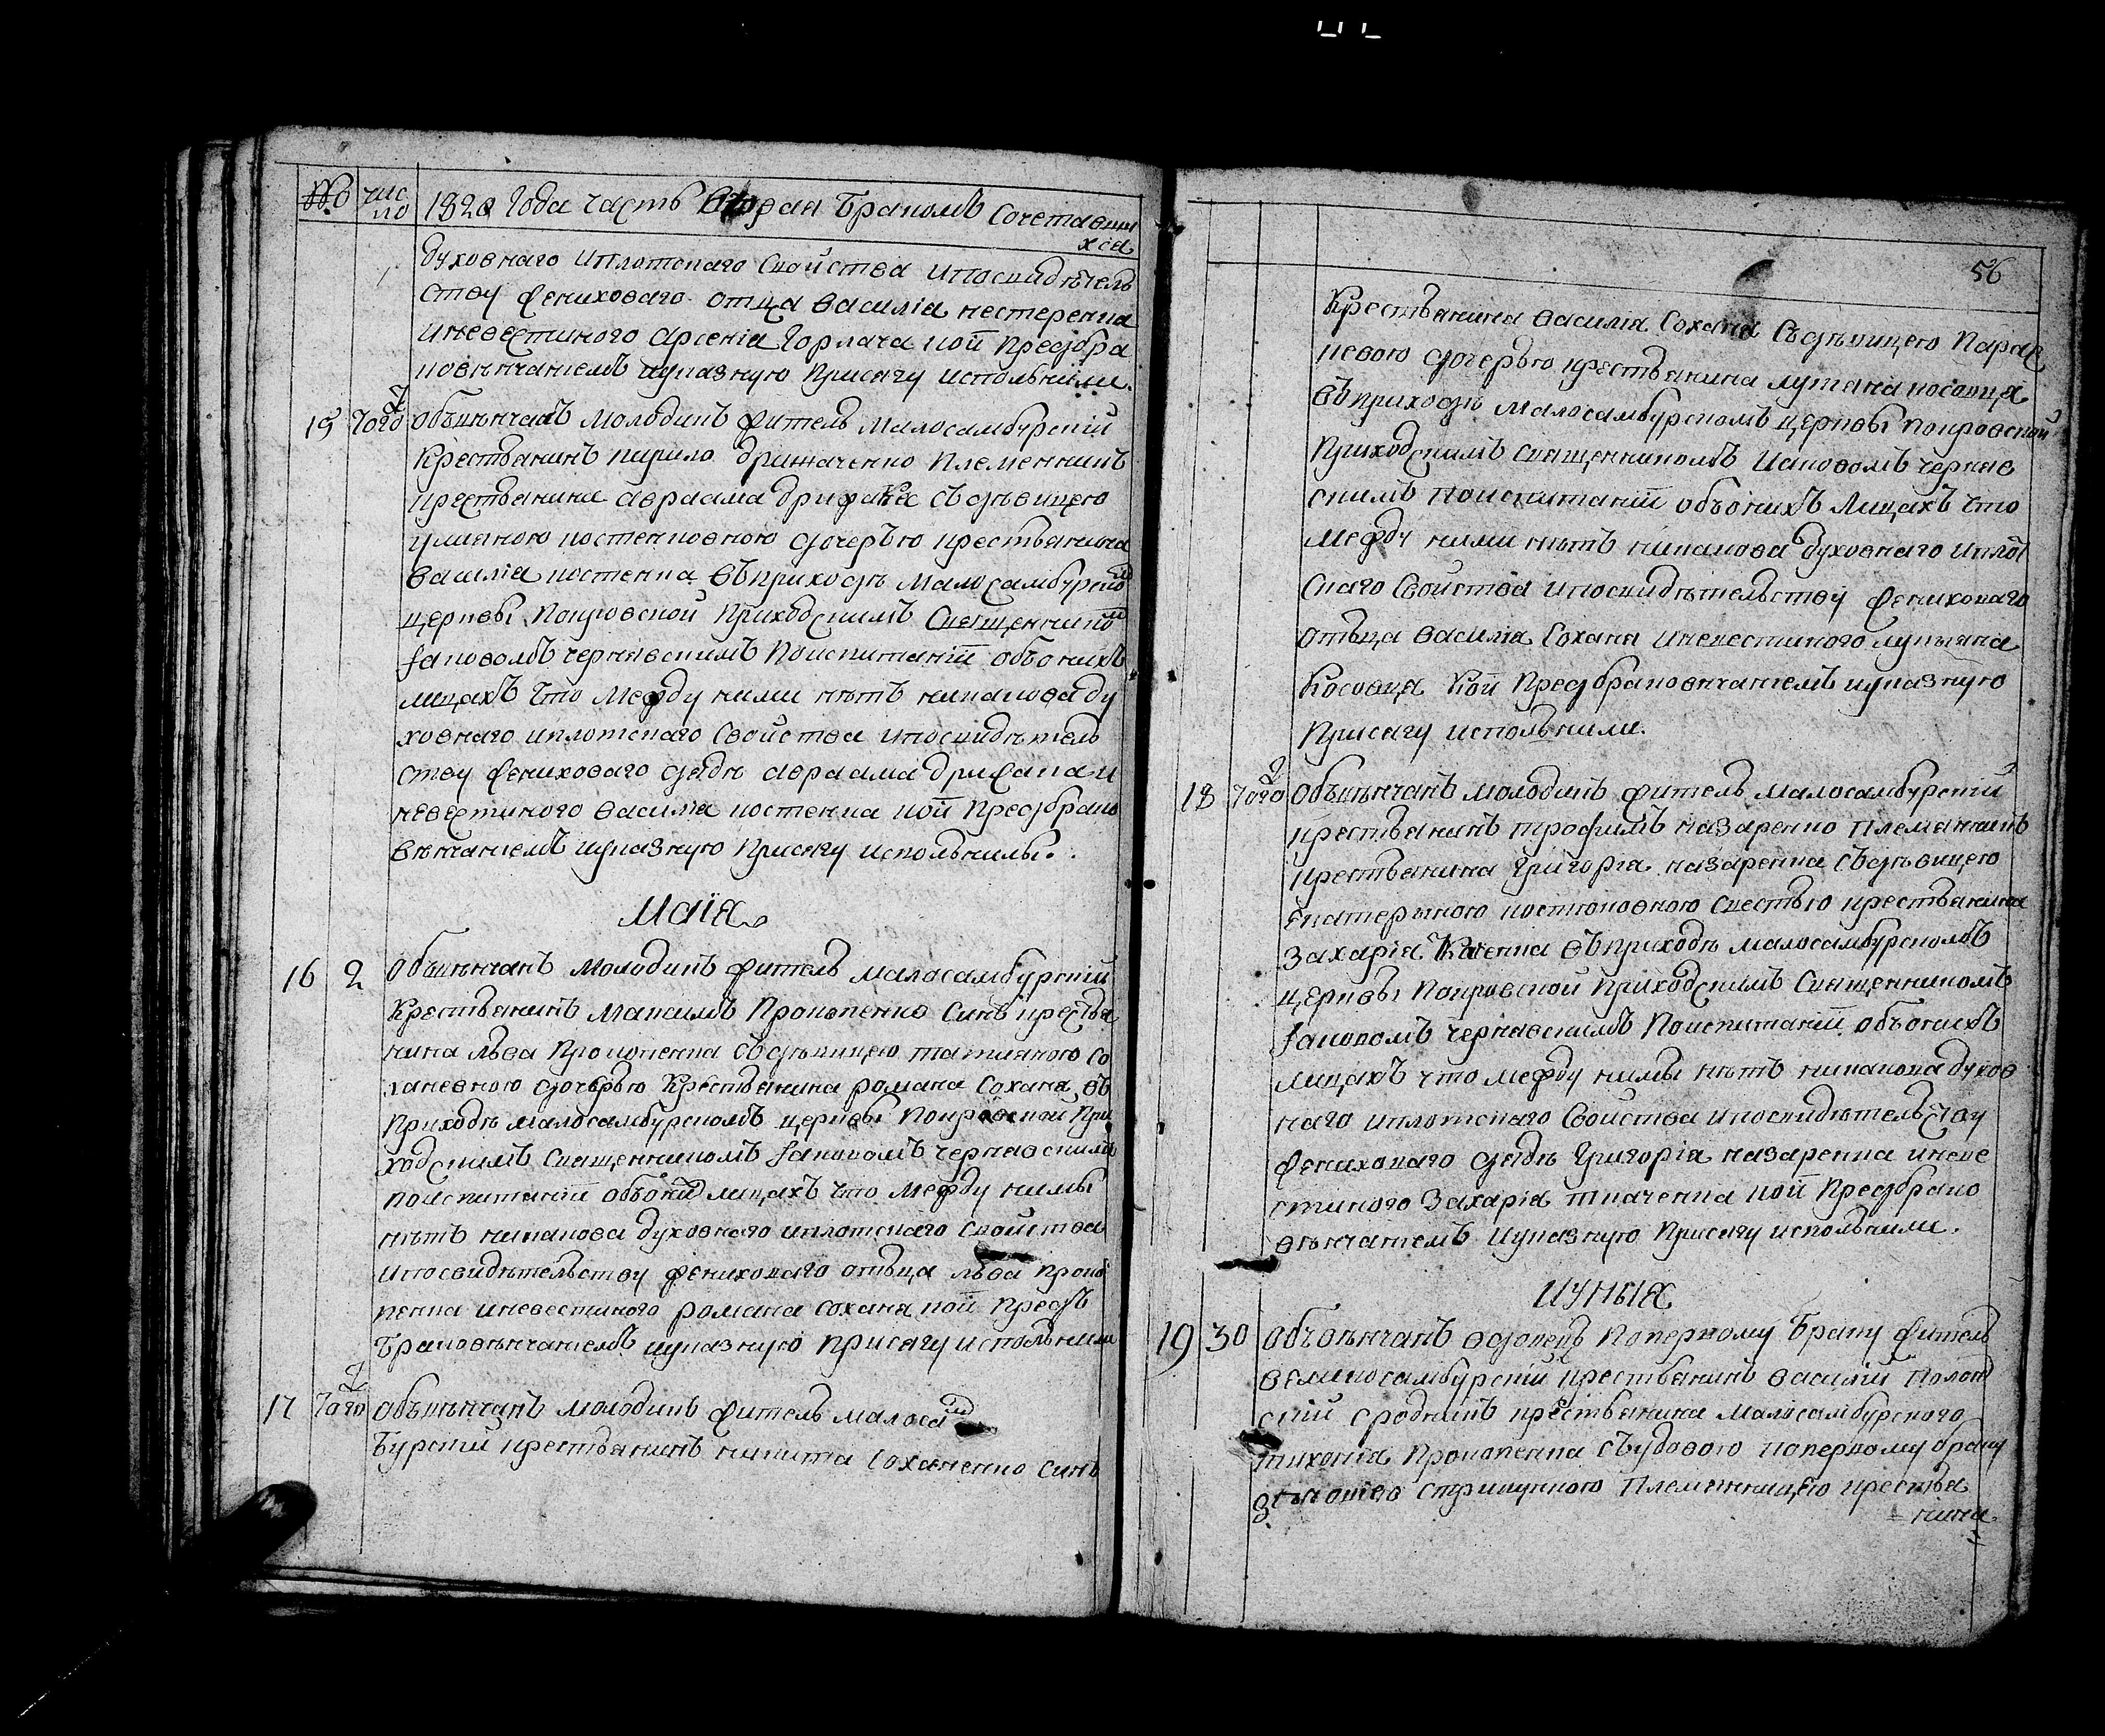 № чис
ло 1820 Года часть Вторая Бракомъ Сочетавши
хся
духовнаго иплотскаго Свойства ипосвидѣтель
ству жениховаго отца Василія нестеренка
иневестиного Арсенія Горлача кой Предбра
ковѣнчаніемъ иуказную Присягу исполънили.
15 Того ж Объвѣнчанъ Молодикъ житель Малосамбурскій
Крестьянинъ кирило дрижаченко Племенникъ
крестьянина авраама дрижака Съ дѣвицею
улияною костенковною дочерью крестьянина
Василія костенка въприходѣ Малосамбурском
церквы Покровской Приходскимъ Священником
Іаковомъ чернявскимъ Поиспитаніи объоныхъ
лицахъ что между ними нѣтъ никакова ду
ховнаго иплотскаго Свойства ипосвидѣтель
ству жениховаго дядѣ авраама дрижака и
невестиного Василія костенка кой Предбрако
вѣнчаніемъ иуказную Присягу исполънилы.
Маія
16 2 Объвѣнчанъ Молодикъ житель малосамбурскій
Крестьянинъ Максимъ Прокопенко Синъ крестья
нина лва Прокопенка Съдѣвицею татияною Со
ханевною дочерью Крестьянина романа Сохана въ
Приходѣ малосамбурскомъ церквы Покровской При
ходскимъ Священникомъ Іаковомъ чернявскимъ
поиспитаніи объоних лицахъ что между нимы
нѣтъ никакова духовнаго иплотскаго Свойства
ипосвидѣтельству жениховаго отъца лъва Проко
пенка иневестиного романа Соханя кой Предъ
браковѣнчаніемъ иуказную присягу исполънили
17 Того ж Объвѣнчанъ молодикъ житель малосам
бурскій крестьянинъ никита Соханенко Синъ
56
Крестьянина Василія Сохана Съдѣвицею Параск
певою дочерью крестьянина лукяна косовца
въприходѣ малосамбурскомъ церквы покровской
Приходскимъ Священникомъ Иаковомъ черняв
скимъ поиспитаніи объонихъ Лицахъ что
между ними нѣтъ никакова духовнаго иплот
скаго Свойства ипосвидѣтельству жениховаго
отъца Василія Сохана иневестиного лукъяна
Косовца Кой Предбраковѣнчаніемъ иуказную
Присягу исполънили.
18 Того ж Объвѣнчанъ молодикъ житель малосамбурскій
крестьянинъ трофимъ назаренко племенникъ
крестьянина Григорія назаренка Съдѣвицею
Екатериною костюковною Свестью крестьянина
Захарія въприходѣ малосамбурскомъ
церквы Покровской Приходскимъ Священникомъ
Іаковомъ чернявскимъ Поиспитаніи объонихъ
лицахъ что между нимы нѣтъ никакова духов
наго иплотскаго Свойства ипосвидѣтельству
жениховаго дядѣ Григорія назаренка иневе
стиного Захарія ткаченка кой Предбрако
вѣнчаніемъ иуказную Присягу исполънили.
иуныя
19 30 Объвѣнчанъ вдовецъ поперному браку житель
великосамбурскій крестьянинъ Василій Полон
скій Сродникъ крестьянина Малосамбурского
тихонія Прокопенка Съудовою поперному браку
Стрижунною Племенницею крестья
нина